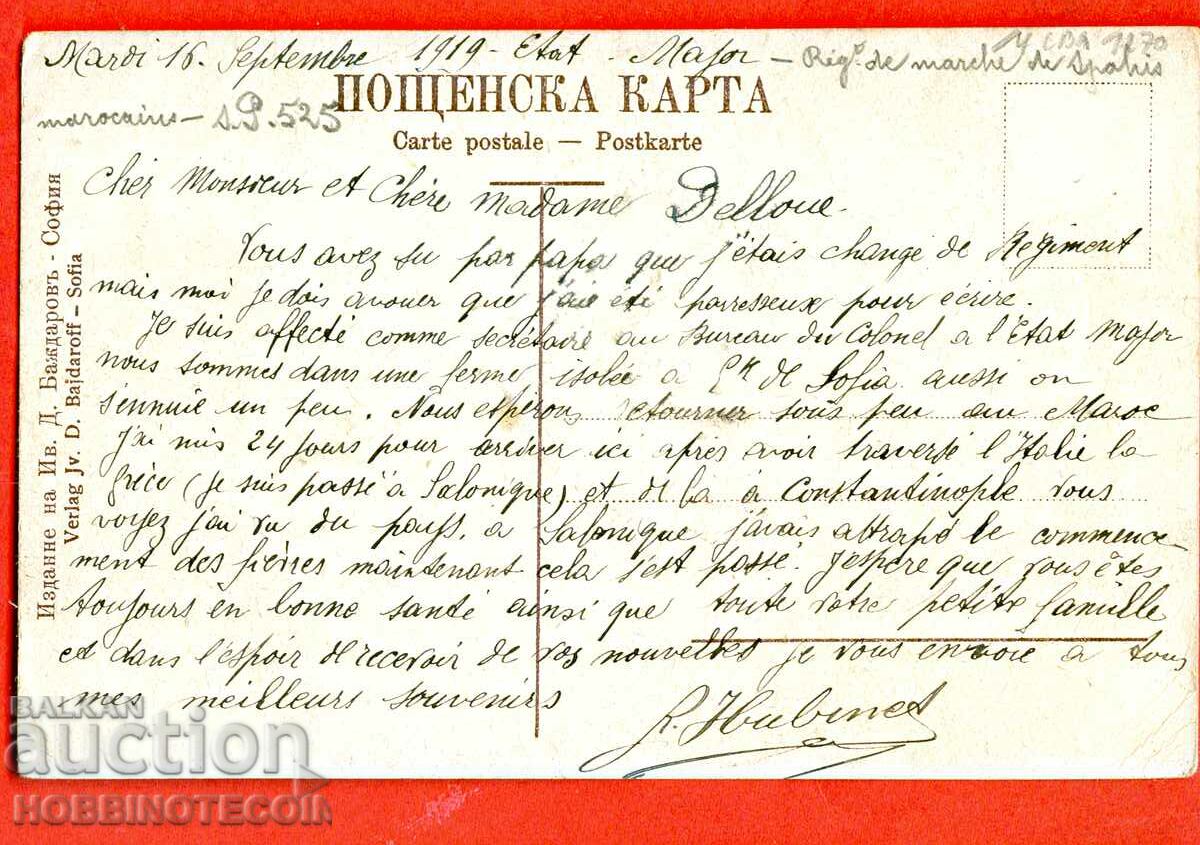 Mardi 16 Septembre 1919 - Etat - Major - Rég.t de marche de Spahis
marocains - S.P. 525
ПОЩЕНСКА КАРТА
Carte postale — Postkarte
Cher Monsieur et Chère Madame Delloue.
Vous avez su par papa que j'étais changé de Régiment
mais moi je dois avouer que j'aie été parresseux pour écrire.
Je suis affecté comme secrétaire au Bureau du Colonel a l'Etat Major
nous sommes dans une ferme isolée à de Sofia aussi on
s'ennuie un peu. Nous espérons retourner sous peu au Maroc
J'ai mis 24 jours pour arriver ici après avoir traversé l'Italie la
Grèce (je suis passé à Salonique) et de là à Constantinople vous
voyez j'ai vu du pays. à Salonique j'avais attrapé le commence-
ment des fièvres maintenant cela s'est passé. J'espère que vous êtes
toujours en bonne santé ainsi que toute votre petite famille
et dans l'espoir de recevoir de vos nouvelles je vous envoie à tous
mes meilleurs souvenirs
R. Hubinet
Издание на Ив. Д. Баждаровъ - София
Verlag Jv. D. Bajdaroff – Sofia
BALKAN
auction
HOBBINOTECOIN